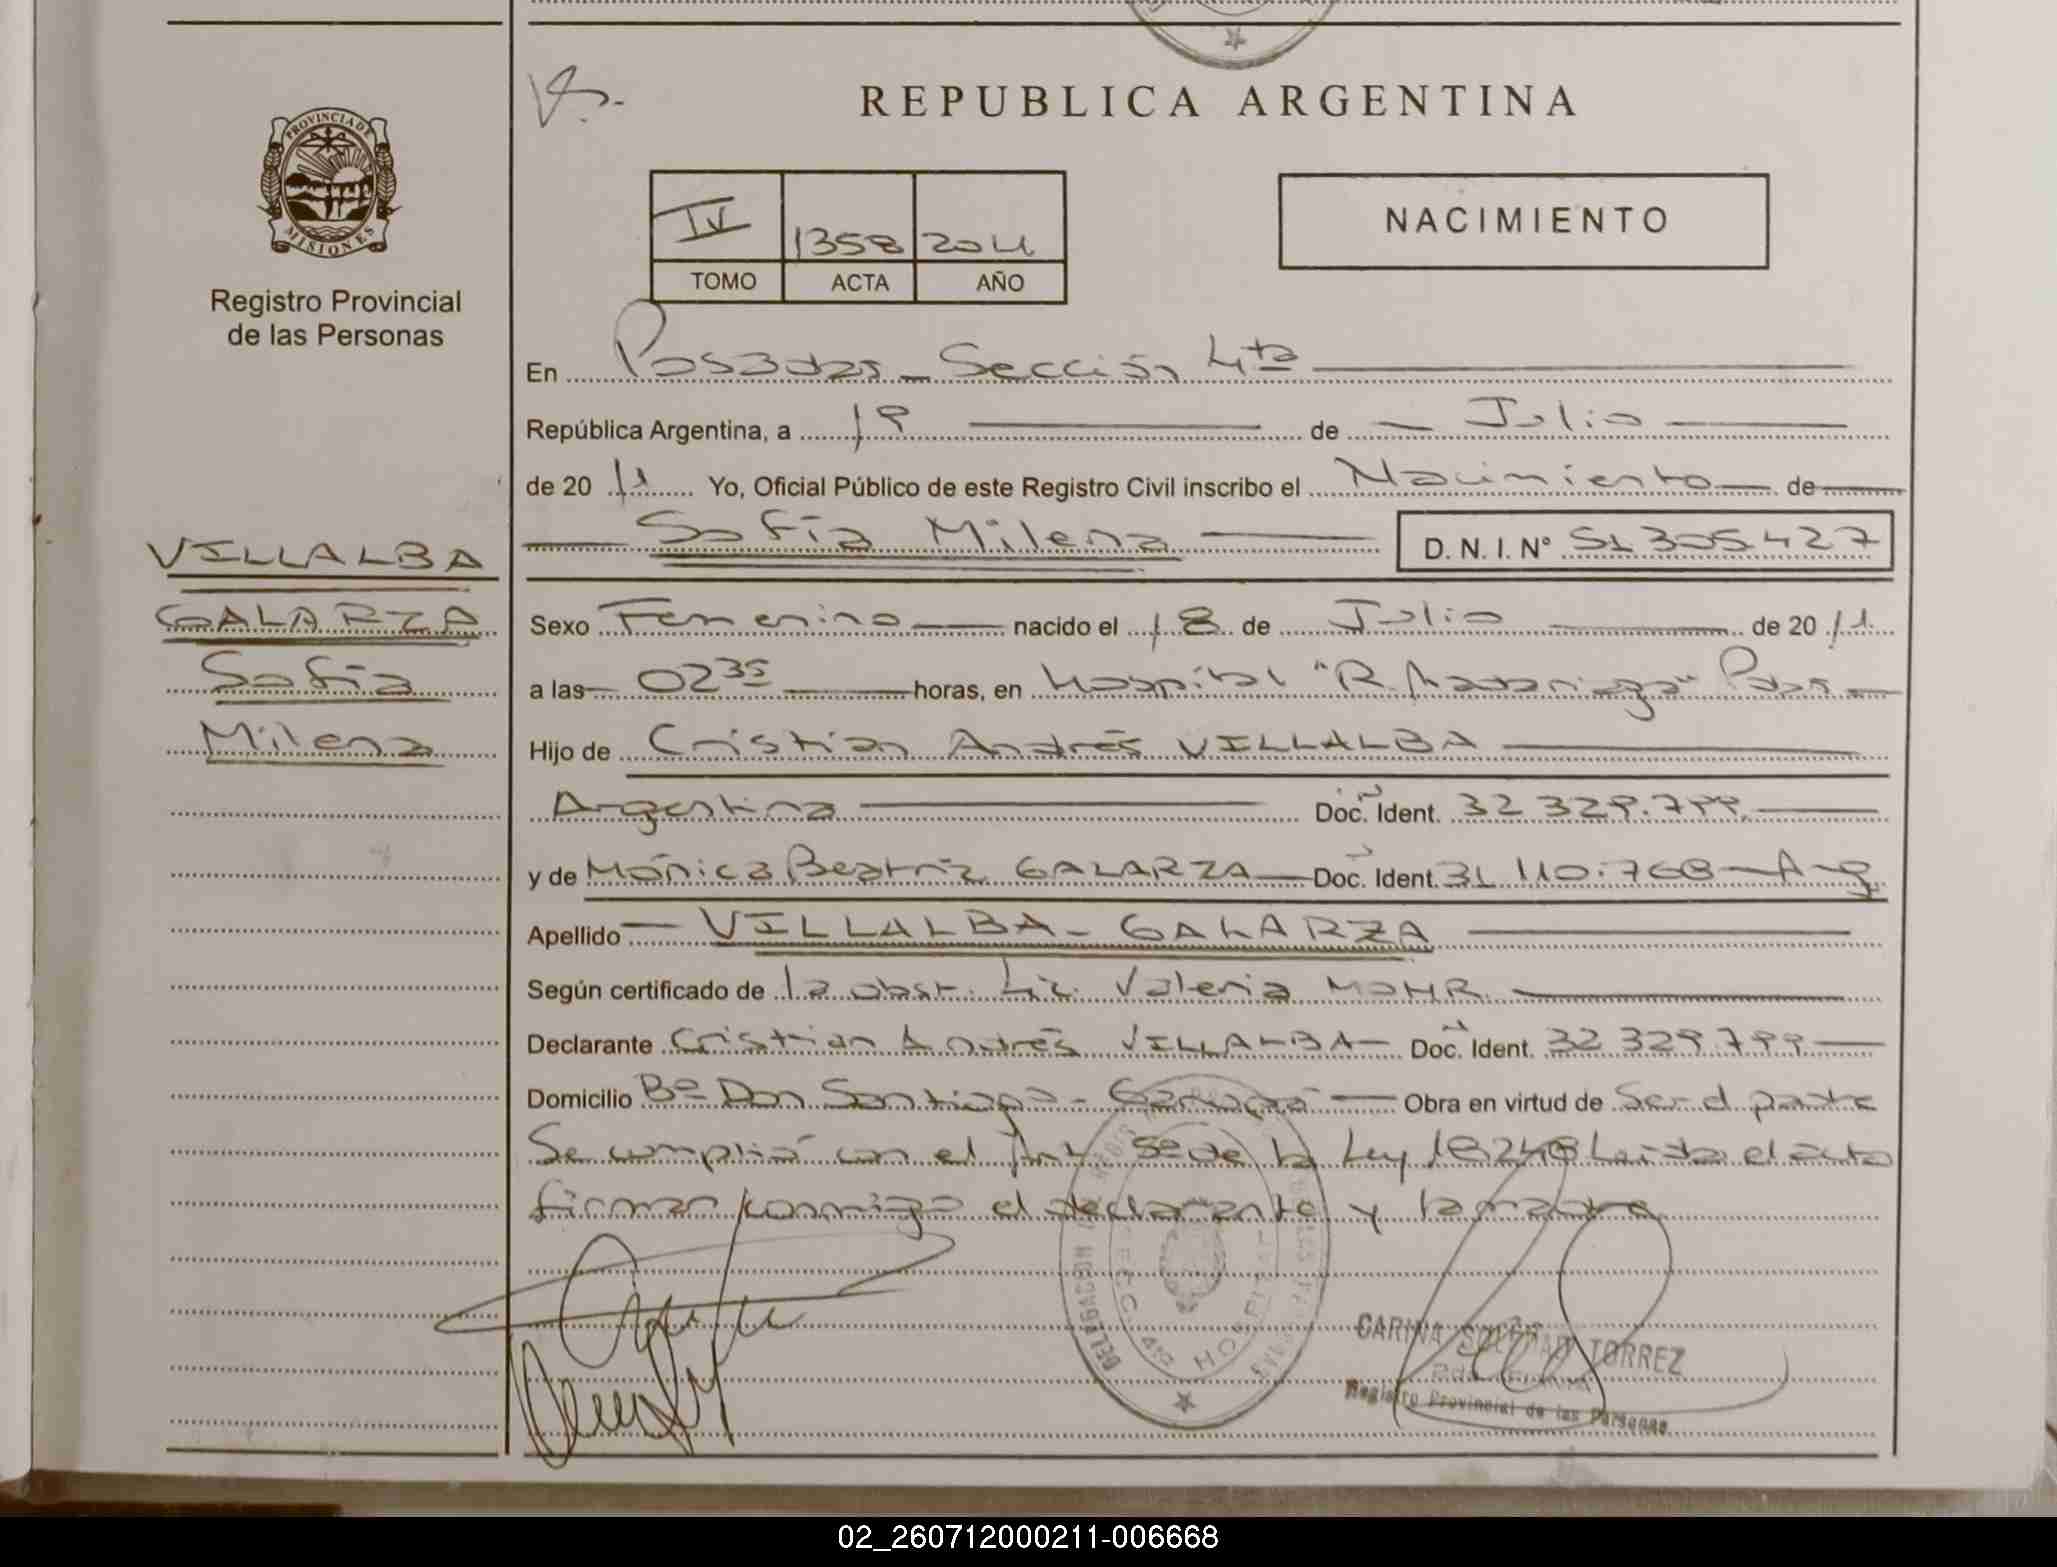 REPUBLICA ARGENTINA
PROVINCIA DE
MISIONES
Registro Provincial
de las Personas
IV 1358 2011
TOMO ACTA AÑO
NACIMIENTO
En Posadas - Sección 4ta
República Argentina, a 19 de Julio
de 2011 Yo, Oficial Público de este Registro Civil inscribo el Nacimiento de
Sofía Milena D. N. I. N° 51305427
VILLALBA
GALARZA
Sofía
Milena
Sexo Femenino nacido el 18 de Julio de 2011
a las 02 35 horas, en Hospital "R. Madariaga" Pdas
Hijo de Cristian Andrés VILLALBA
Argentina Doc. Ident. 32 329.799
y de Mónica Beatriz GALARZA Doc. Ident. 31 110.768 - Arg
Apellido VILLALBA - GALARZA
Según certificado de la obst. Lic. Valeria MOHR
Declarante Cristian Andrés VILLALBA Doc. Ident. 32 329 799
Domicilio Bº Don Santiago - Garupá Obra en virtud de Ser el padre
Se cumplió con el Art 5º de la Ley 18248 Leída el acta
firman conmigo el declarante y la madre
DELEGACION
SECC. 4ta HOSPITAL
CARINA SOLEDAD TORREZ
Registro Provincial de las Personas
02_260712000211-006668